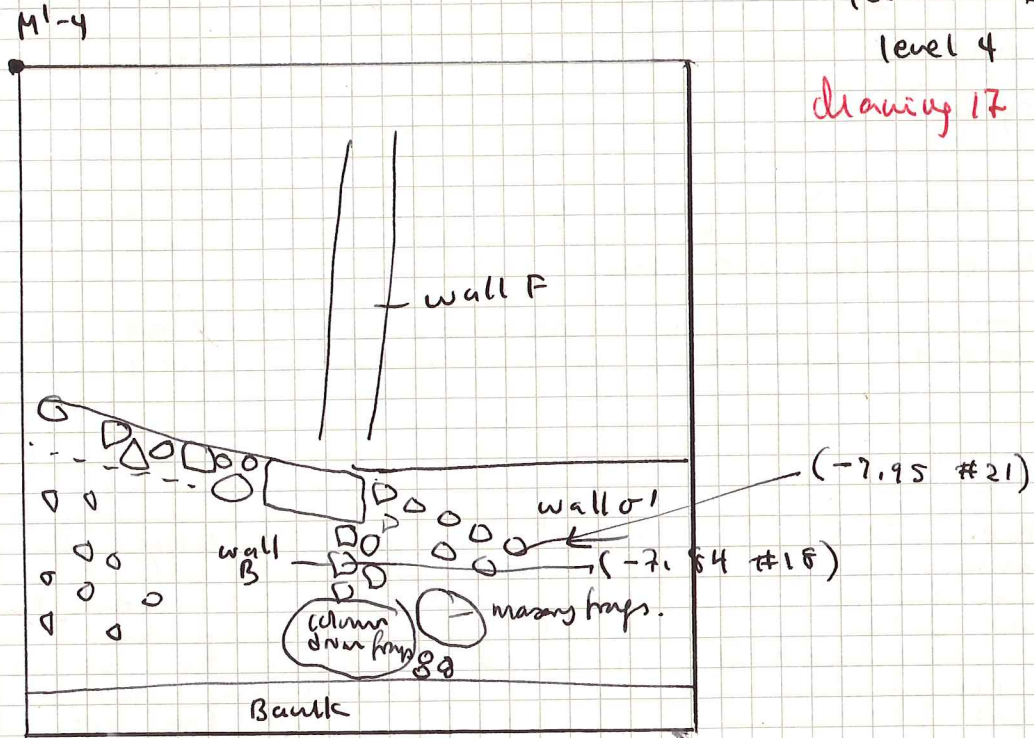 M'-4
level 4
drawing 17
wall F
(-7.95 #21)
wall o'
wall
B
(-7.84 #18)
column
drum frags
masonry frags.
Baulk